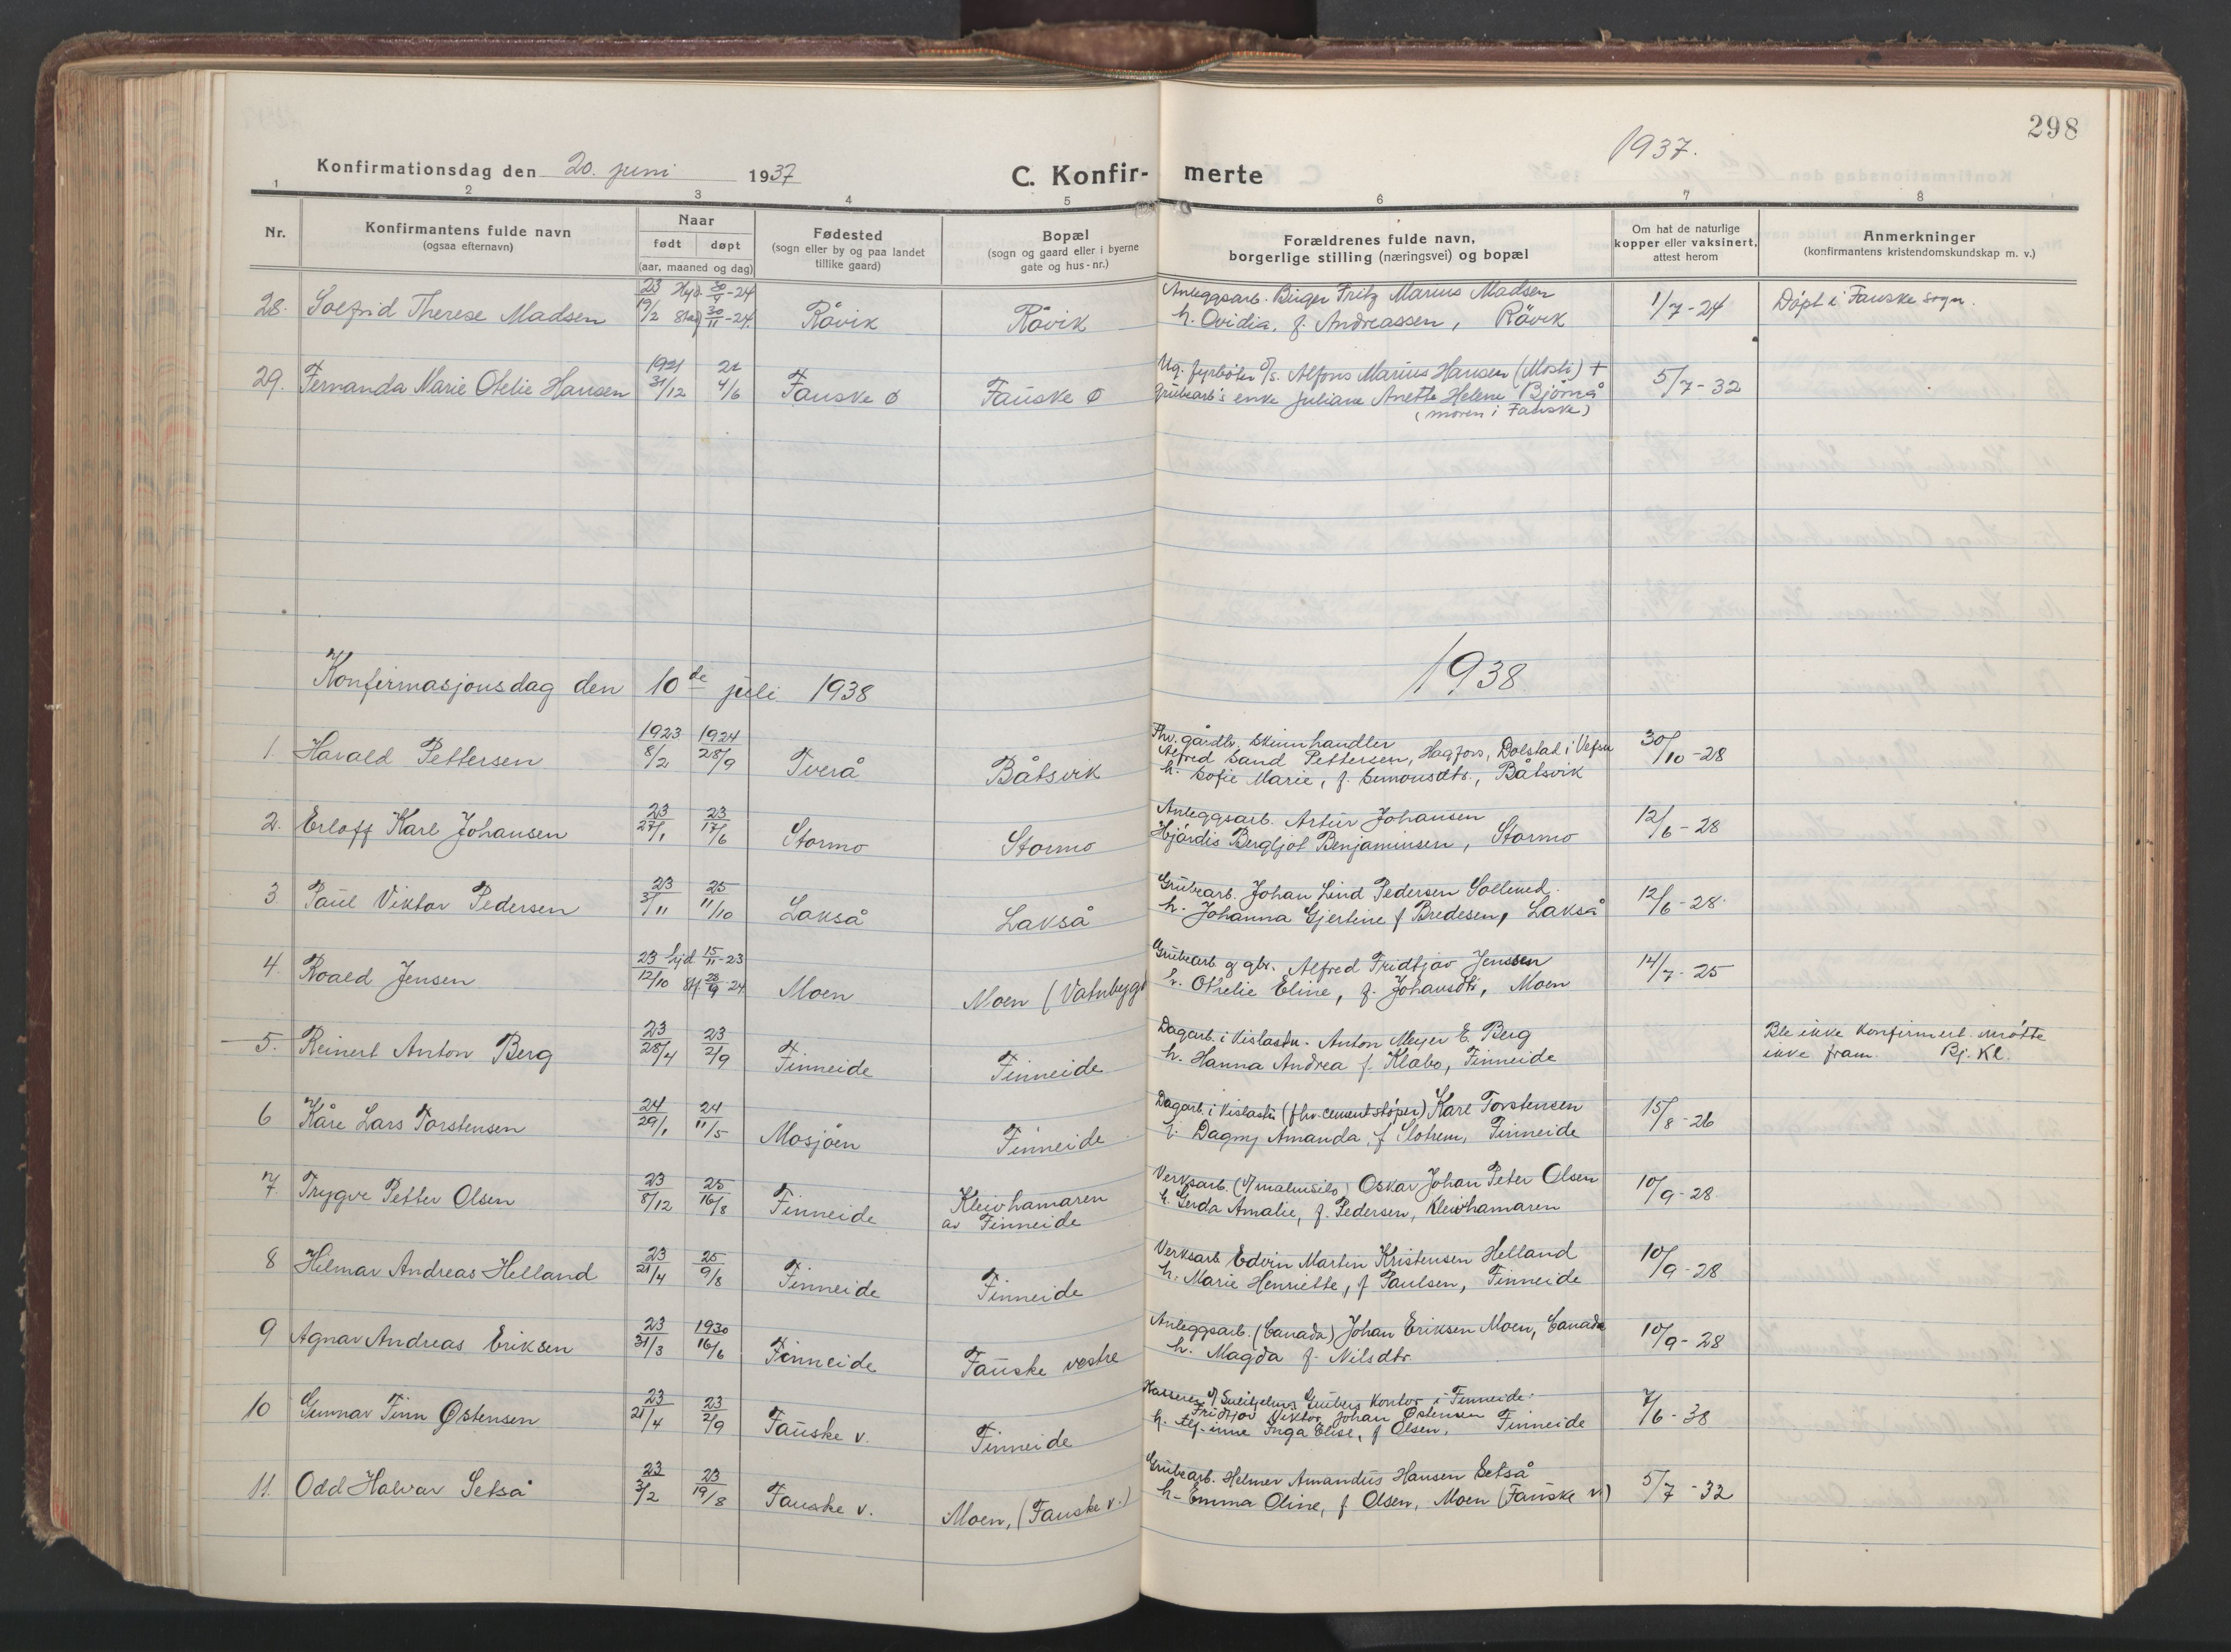 298
1937.
Konfirmationsdag den 20. juni 1937
C. Konfir- merte
1 2 3 4 5 6 7 8
Nr.
Konfirmantens fulde navn
(ogsaa efternavn)
Naar
født døpt
(aar, maaned og dag)
Fødested
(sogn eller by og paa landet
tillike gaard)
Bopæl
(sogn og gaard eller i byerne
gate og hus-nr.)
Forældrenes fulde navn,
borgerlige stilling (næringsvei) og bopæl
Om hat de naturlige
kopper eller vaksinert,
attest herom
Anmerkninger
(konfirmantens kristendomskundskap m. v.)
28. Solfrid Therese Madsen
23 19/2
30/11-24
Råvik
Råvik
Anleggsarb. Birger Fritz Marius Madsen
h. Ovidia, f. Andreassen, Råvik
1/7-24
Døpt i Fauske sogn.
29. Fernanda Marie Otelie Hansen
1921 31/12
4/6
Fauske Ø
Fauske Ø
Ug. fyrbøter Alfons Marius Hansen (Mosti) +
Grubearb's enke Juliane Anette Helene Bjørnå
(moren i Fauske)
5/7-32
Konfirmasjonsdag den 10de juli 1938
1938
1. Harald Pettersen
1923 8/2
1924 28/9
Tverå
Båtsvik
Fhv. gårdbr. skinnhandler
Alfred Sand Pettersen, Hagfors, Dolstad i Vefsn
h. Sofie Marie, f. Simonsdtr., Båtsvik
30/10-28
2. Erloff Karl Johansen
23 27/1
23 17/6
Stormo
Stormo
Anleggsarb. Artur Johansen
Hjördis Bergljot Benjaminsen, Stormo
12/6-28
3 Paul Viktor Pedersen
23 3/11
25 11/10
Lakså
Lakså
Grubearb. Johan Lind Pedersen
h. Johanna Gjertine f Bredesen, Lakså
12/6-28.
4. Roald Jensen
23 12/10
hjd 15/11-23
stf 28/9-24
Moen
Moen (Vatnbygd
Grubearb. og gbr. Alfred Fridtjov Jenssen
h. Othelie Eline, f. Johansdtr, Moen
14/7-25
5. Reinert Anton Berg
23 28/4
23 2/9
Finneide
Finneide
Dagarb. i Anton Meyer E. Berg
h. Hanna Andrea f. Klabo, Finneide
Ble ikke konfirmert. møtte
ikke fram. Bj. Kl.
6 Kåre Lars Torstensen
24 29/1
24 11/5
Mosjöen
Finneide
Dagarb. i (fhv. cementstøper) Karl Torstensen
h. Dagny Amanda, f Finneide
15/8-26
7. Trygve Petter Olsen
23 8/12
25 16/8
Finneide
Kleivhamaren
av Finneide
Verksarb. (v/malmsilo) Oskar Johan Peter Olsen
h. Gerda Amalie, f. Pedersen, Kleivhamaren
10/9-28
8 Hilmar Andreas Helland
23 21/4
25 9/8
Finneide
Finneide
Verksarb Edvin Martin Kristensen Helland
h. Marie Henriette, f Paulsen, Finneide
10/9-28
9 Agnar Andreas Eriksen
23 31/3
1930 16/6
Finneide
Fauske vestre
Anleggsarb. (Canada) Johan Eriksen Moen, Canada
h. Magda f. Nilsdtr.
10/9-28
10 Gunnar Finn Østensen
23 21/4
23 2/9
Fauske v.
Finneide
Kasserer v/ Sulitjelma Grubers kontor i Finneide
Fridtjov Viktor Johan Østensen
h. Inga Elise, f Olsen, Finneide
7/6-38
11. Odd Halvar Setså
23 3/2
23 19/8
Fauske v.
Moen, (Fauske v.)
Grubearb. Helmer Amandus Hansen Setså
h- Emma Oline, f Olsen, Moen (Fauske v.)
5/7-32